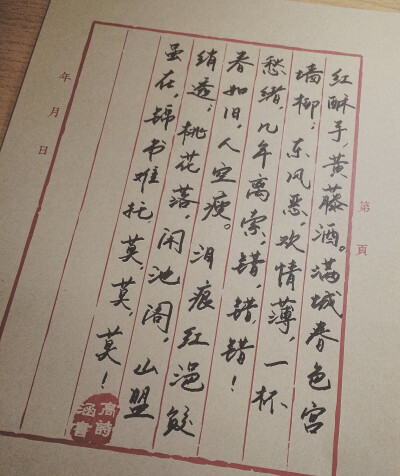 第 頁
红酥手,黄藤酒。满城春色宫
墙柳;东风恶,欢情薄,一杯
愁绪,几年离索,错,错,错!
春如旧,人空瘦。泪痕红浥鲛
绡透;桃花落,闲池阁,山盟
虽在,锦书难托,莫,莫,莫!
高詩
涵書
年 月 日